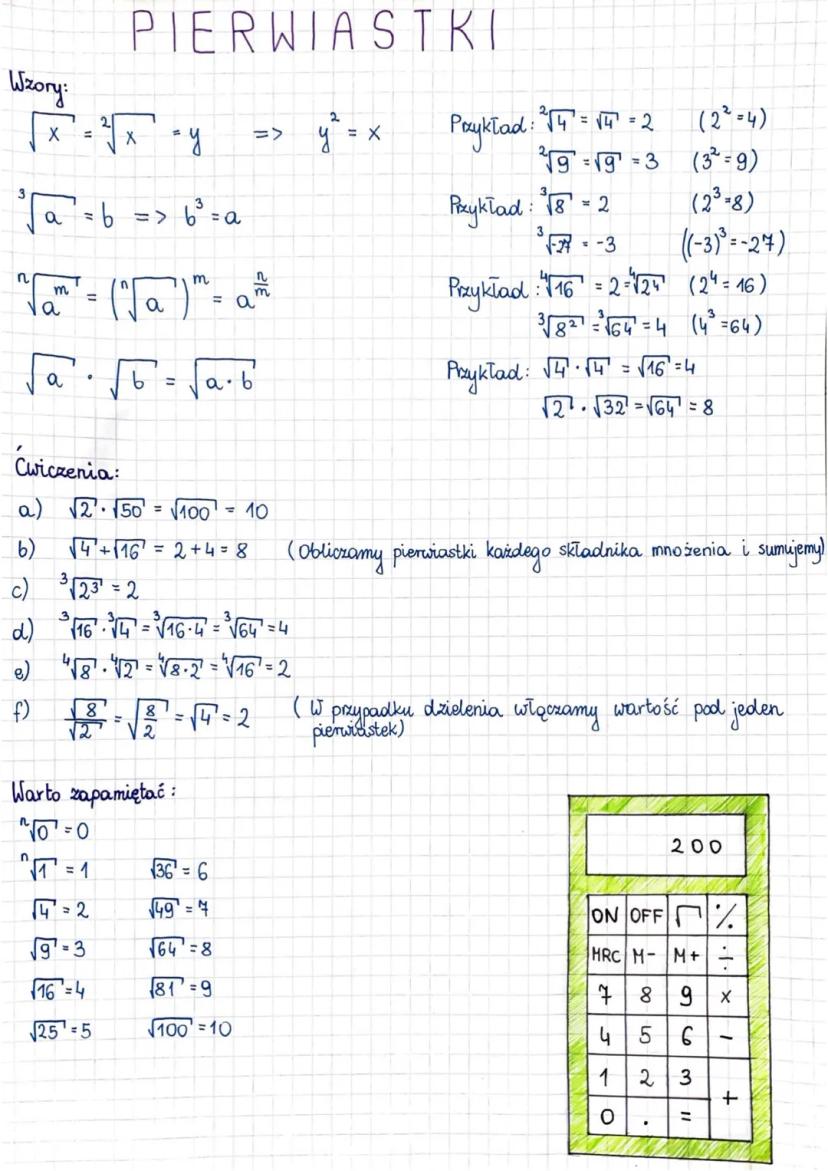 PIERWIASTKI
Wzory:
√x = ²√x = y => y² = x
Przykład: ²√4 = √4 = 2 (2² = 4)
²√9 = √9 = 3 (3² = 9)
³√a = b => b³ = a
Przykład: ³√8 = 2 (2³ = 8)
³√-27 = -3 ((-3)³ = -27)
ⁿ√aᵐ = (ⁿ√a)ᵐ = a^(n/m)
Przykład: ⁴√16 = 2 = ⁴√2⁴ (2⁴ = 16)
³√8² = ³√64 = 4 (4³ = 64)
√a · √b = √a·b
Przykład: √4 · √4 = √16 = 4
√2 · √32 = √64 = 8
Ćwiczenia:
a) √2 · √50 = √100 = 10
b) √4 + √16 = 2 + 4 = 8 (Obliczamy pierwiastki każdego składnika mnożenia i sumujemy)
c) ³√2³ = 2
d) ³√16 · ³√4 = ³√16·4 = ³√64 = 4
e) ⁴√8 · ⁴√2 = ⁴√8·2 = ⁴√16 = 2
f) √8/√2 = √(8/2) = √4 = 2 (W przypadku dzielenia włączamy wartość pod jeden
pierwiastek)
Warto zapamiętać:
ⁿ√0 = 0
ⁿ√1 = 1 √36 = 6
√4 = 2 √49 = 7
√9 = 3 √64 = 8
√16 = 4 √81 = 9
√25 = 5 √100 = 10
200
ON OFF √ %
MRC M- M+ ÷
7 8 9 x
4 5 6 -
1 2 3 +
0 . =